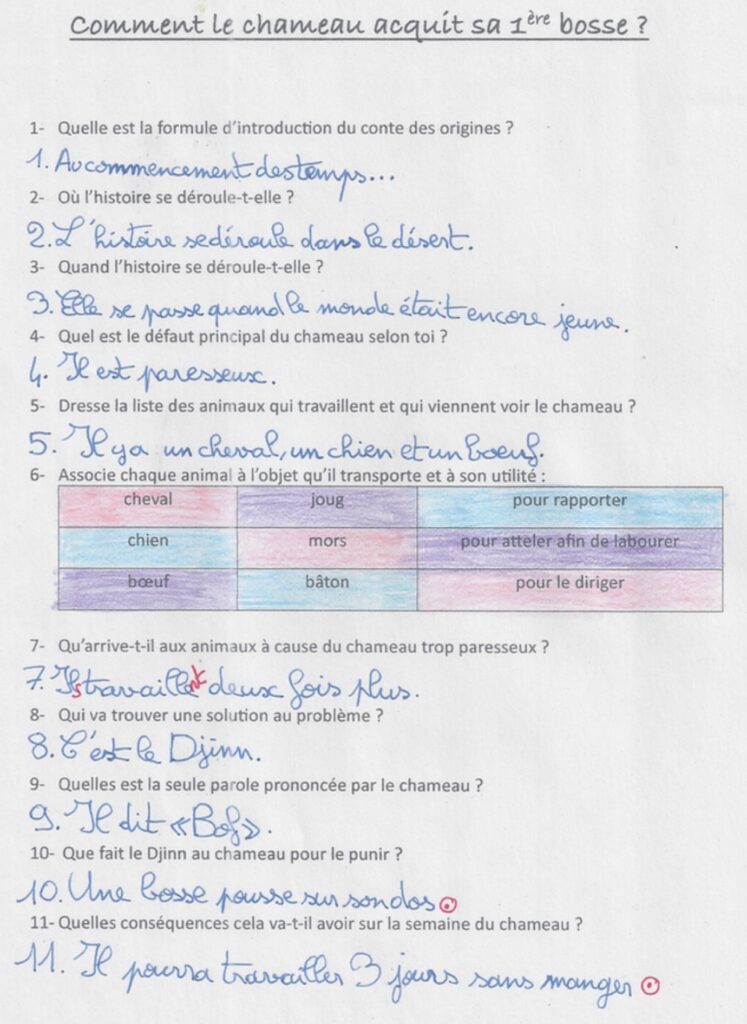 Comment le chameau acquit sa 1ère bosse ?
1- Quelle est la formule d'introduction du conte des origines ?
1. Au commencement des temps...
2- Où l'histoire se déroule-t-elle ?
2. L'histoire se déroule dans le désert.
3- Quand l'histoire se déroule-t-elle ?
3. Elle se passe quand le monde était encore jeune.
4- Quel est le défaut principal du chameau selon toi ?
4. Il est paresseux.
5- Dresse la liste des animaux qui travaillent et qui viennent voir le chameau ?
5. Il y a un cheval, un chien et un boeuf.
6- Associe chaque animal à l'objet qu'il transporte et à son utilité :
cheval joug pour rapporter
chien mors pour atteler afin de labourer
bœuf bâton pour le diriger
7- Qu'arrive-t-il aux animaux à cause du chameau trop paresseux ?
7. Ils travaillent deux fois plus.
8- Qui va trouver une solution au problème ?
8. C'est le Djinn.
9- Quelles est la seule parole prononcée par le chameau ?
9. Il dit «Bof».
10- Que fait le Djinn au chameau pour le punir ?
10. Une bosse pousse sur son dos.
11- Quelles conséquences cela va-t-il avoir sur la semaine du chameau ?
11. Il pourra travailler 3 jours sans manger.